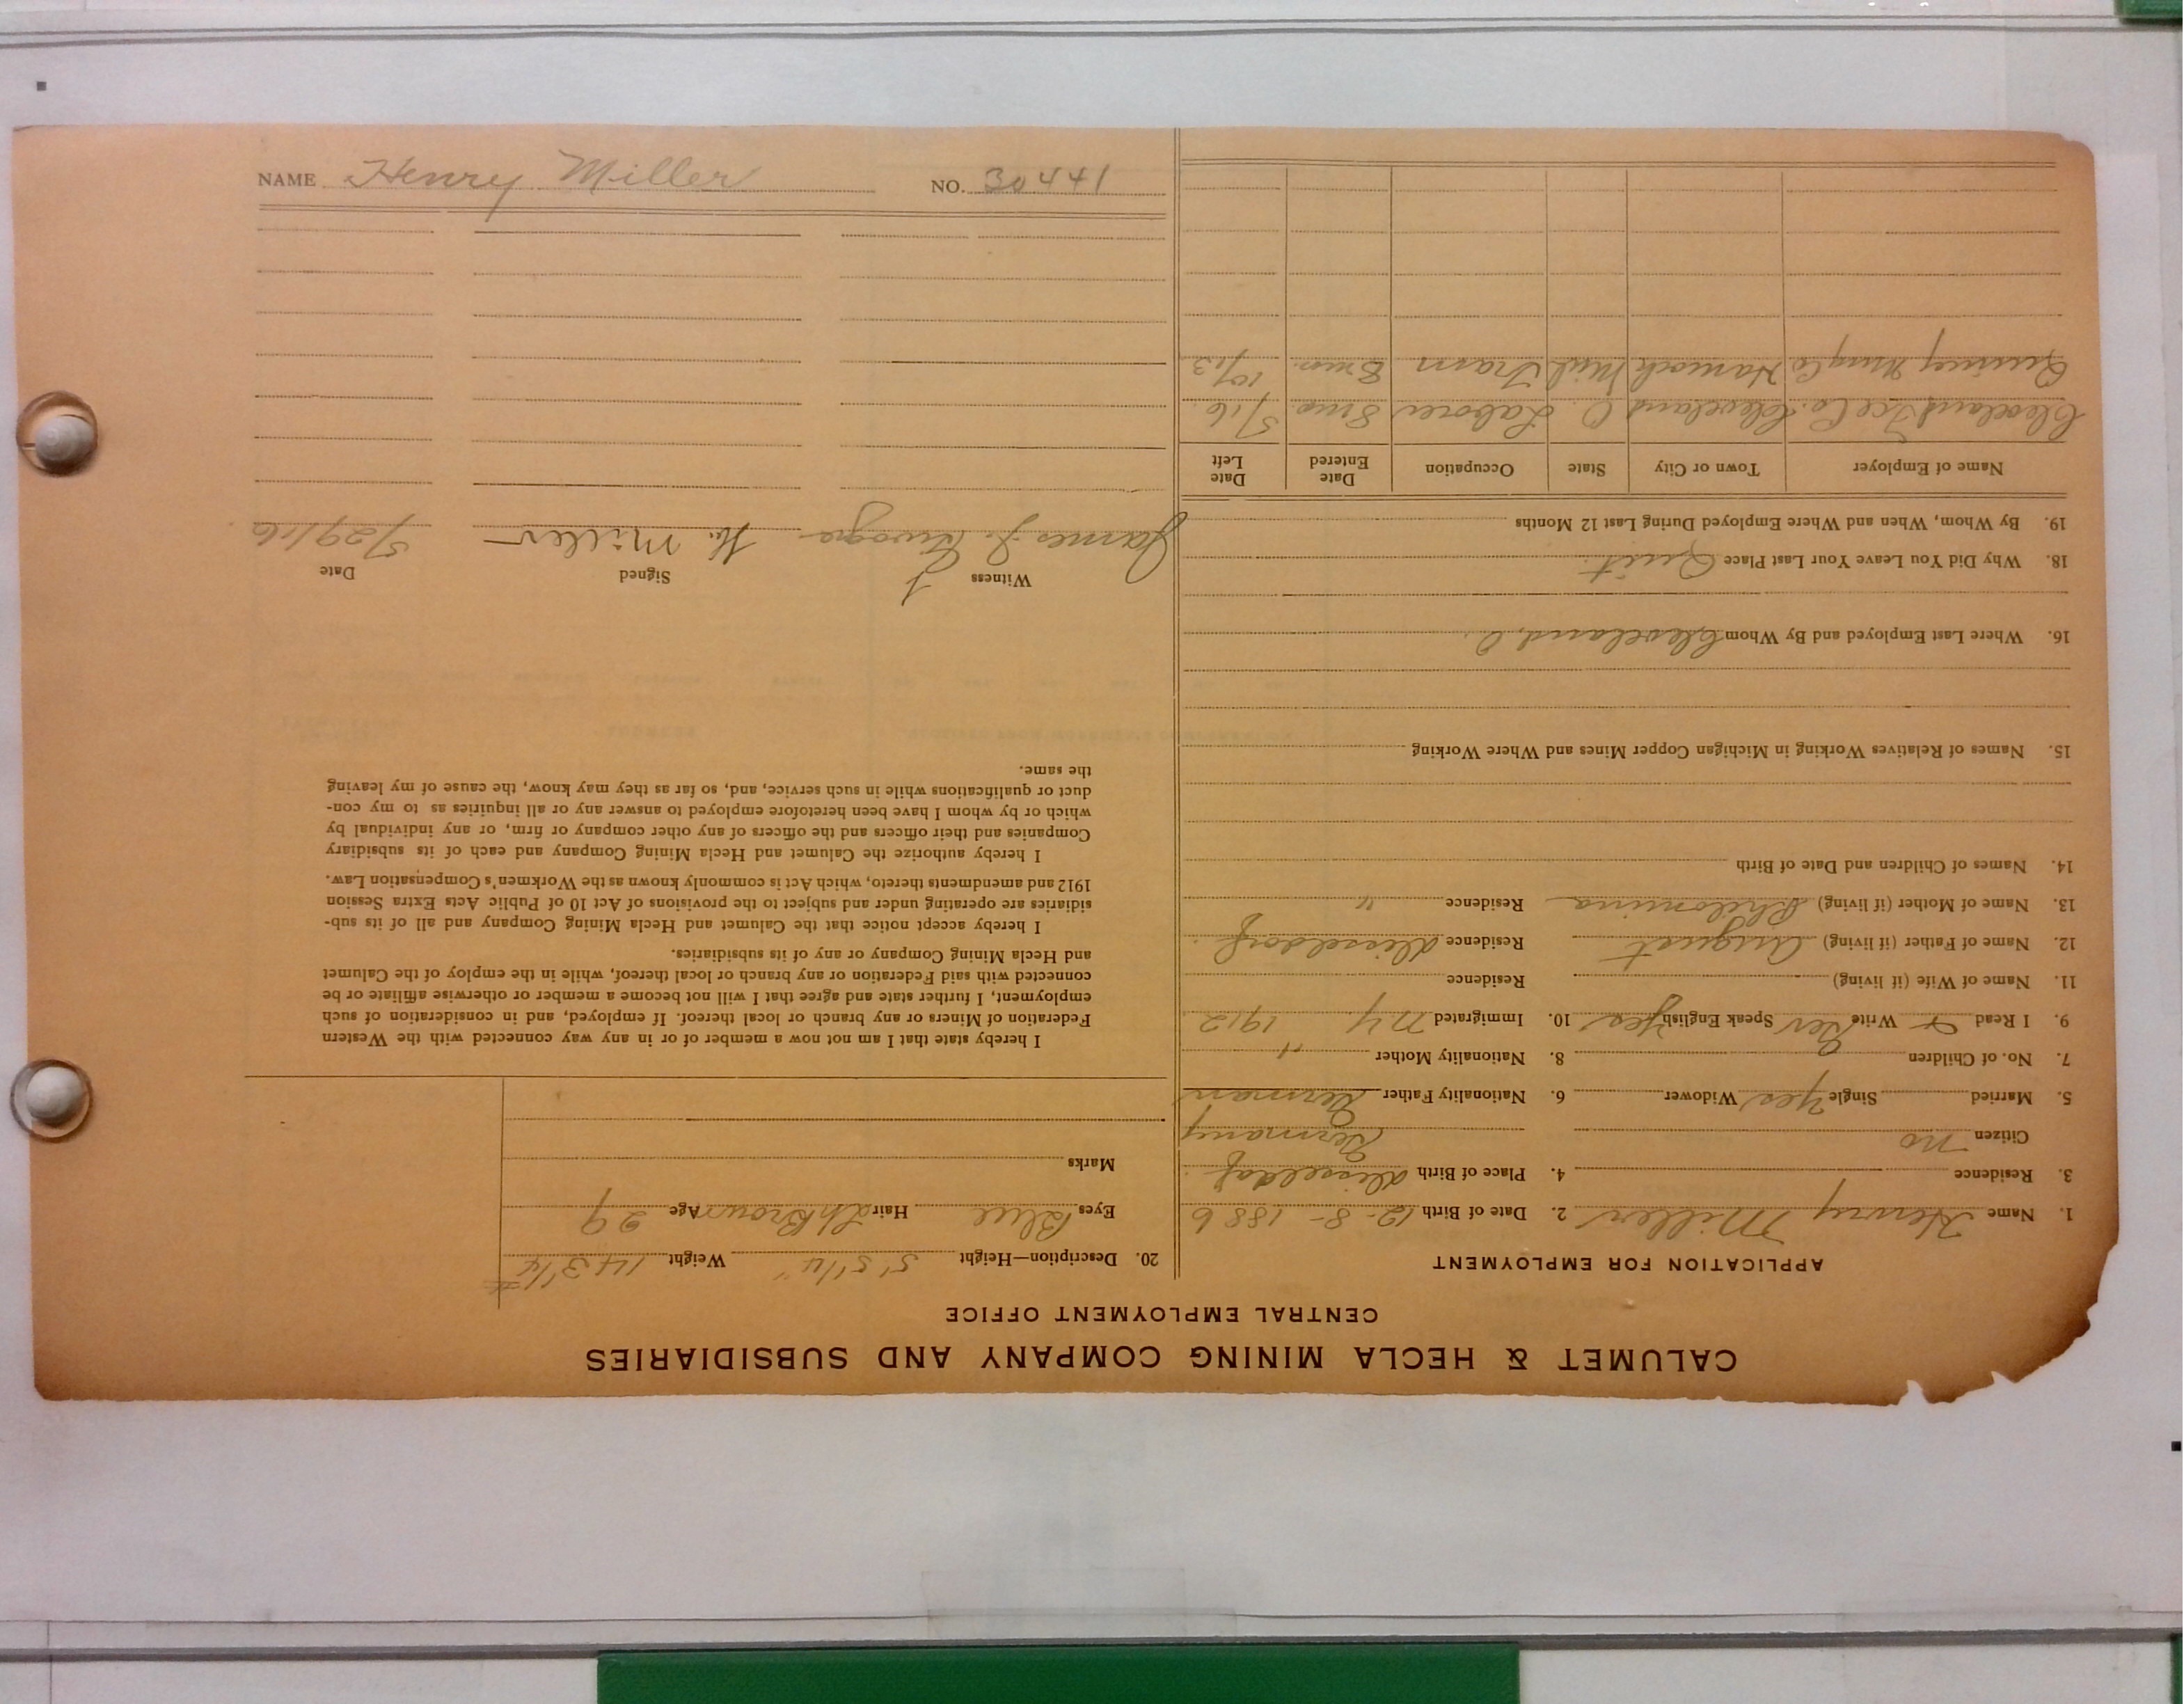 CALUMET & HECLA MINING COMPANY AND SUBSIDIARIES
CENTRAL EMPLOYMENT OFFICE
APPLICATION FOR EMPLOYMENT
1. Name Henry Miller 2. Date of Birth 12-8-1886
3. Residence 4. Place of Birth Disseldof
Citizen no Germany
5. Married Single Yes Widower 6. Nationality Father German
7. No. of Children 8. Nationality Mother "
9. I Read & Write Ger Speak English Yes 10. Immigrated My 1912
11. Name of Wife (if living) Residence
12. Name of Father (if living) August Residence Disseldorf
13. Name of Mother (if living) Philomina Residence "
14. Names of Children and Date of Birth
15. Names of Relatives Working in Michigan Copper Mines and Where Working
16. Where Last Employed and By Whom Cleveland, O.
18. Why Did You Leave Your Last Place Quit.
19. By Whom, When and Where Employed During Last 12 Months
Name of Employer Town or City State Occupation Date Entered Date Left
Cleveland Ice Co. Cleveland O. Laborer 8 mo. 5/16
Quincy Mng Co Hancock Mich Tram 8 mo. 10/13
20. Description—Height 5' 5 1/4" Weight 143 1/4 #
Eyes Blue Hair Lt Brown Age 29
Marks
I hereby state that I am not now a member of or in any way connected with the Western
Federation of Miners or any branch or local thereof. If employed, and in consideration of such
employment, I further state and agree that I will not become a member or otherwise affiliate or be
connected with said Federation or any branch or local thereof, while in the employ of the Calumet
and Hecla Mining Company or any of its subsidiaries.
I hereby accept notice that the Calumet and Hecla Mining Company and all of its sub-
sidiaries are operating under and subject to the provisions of Act 10 of Public Acts Extra Session
1912 and amendments thereto, which Act is commonly known as the Workmen's Compensation Law.
I hereby authorize the Calumet and Hecla Mining Company and each of its subsidiary
Companies and their officers and the officers of any other company or firm, or any individual by
which or by whom I have been heretofore employed to answer any or all inquiries as to my con-
duct or qualifications while in such service, and, so far as they may know, the cause of my leaving
the same.
Witness Signed Date
James J. H. Miller 5/29/16
NAME Henry Miller NO. 30441